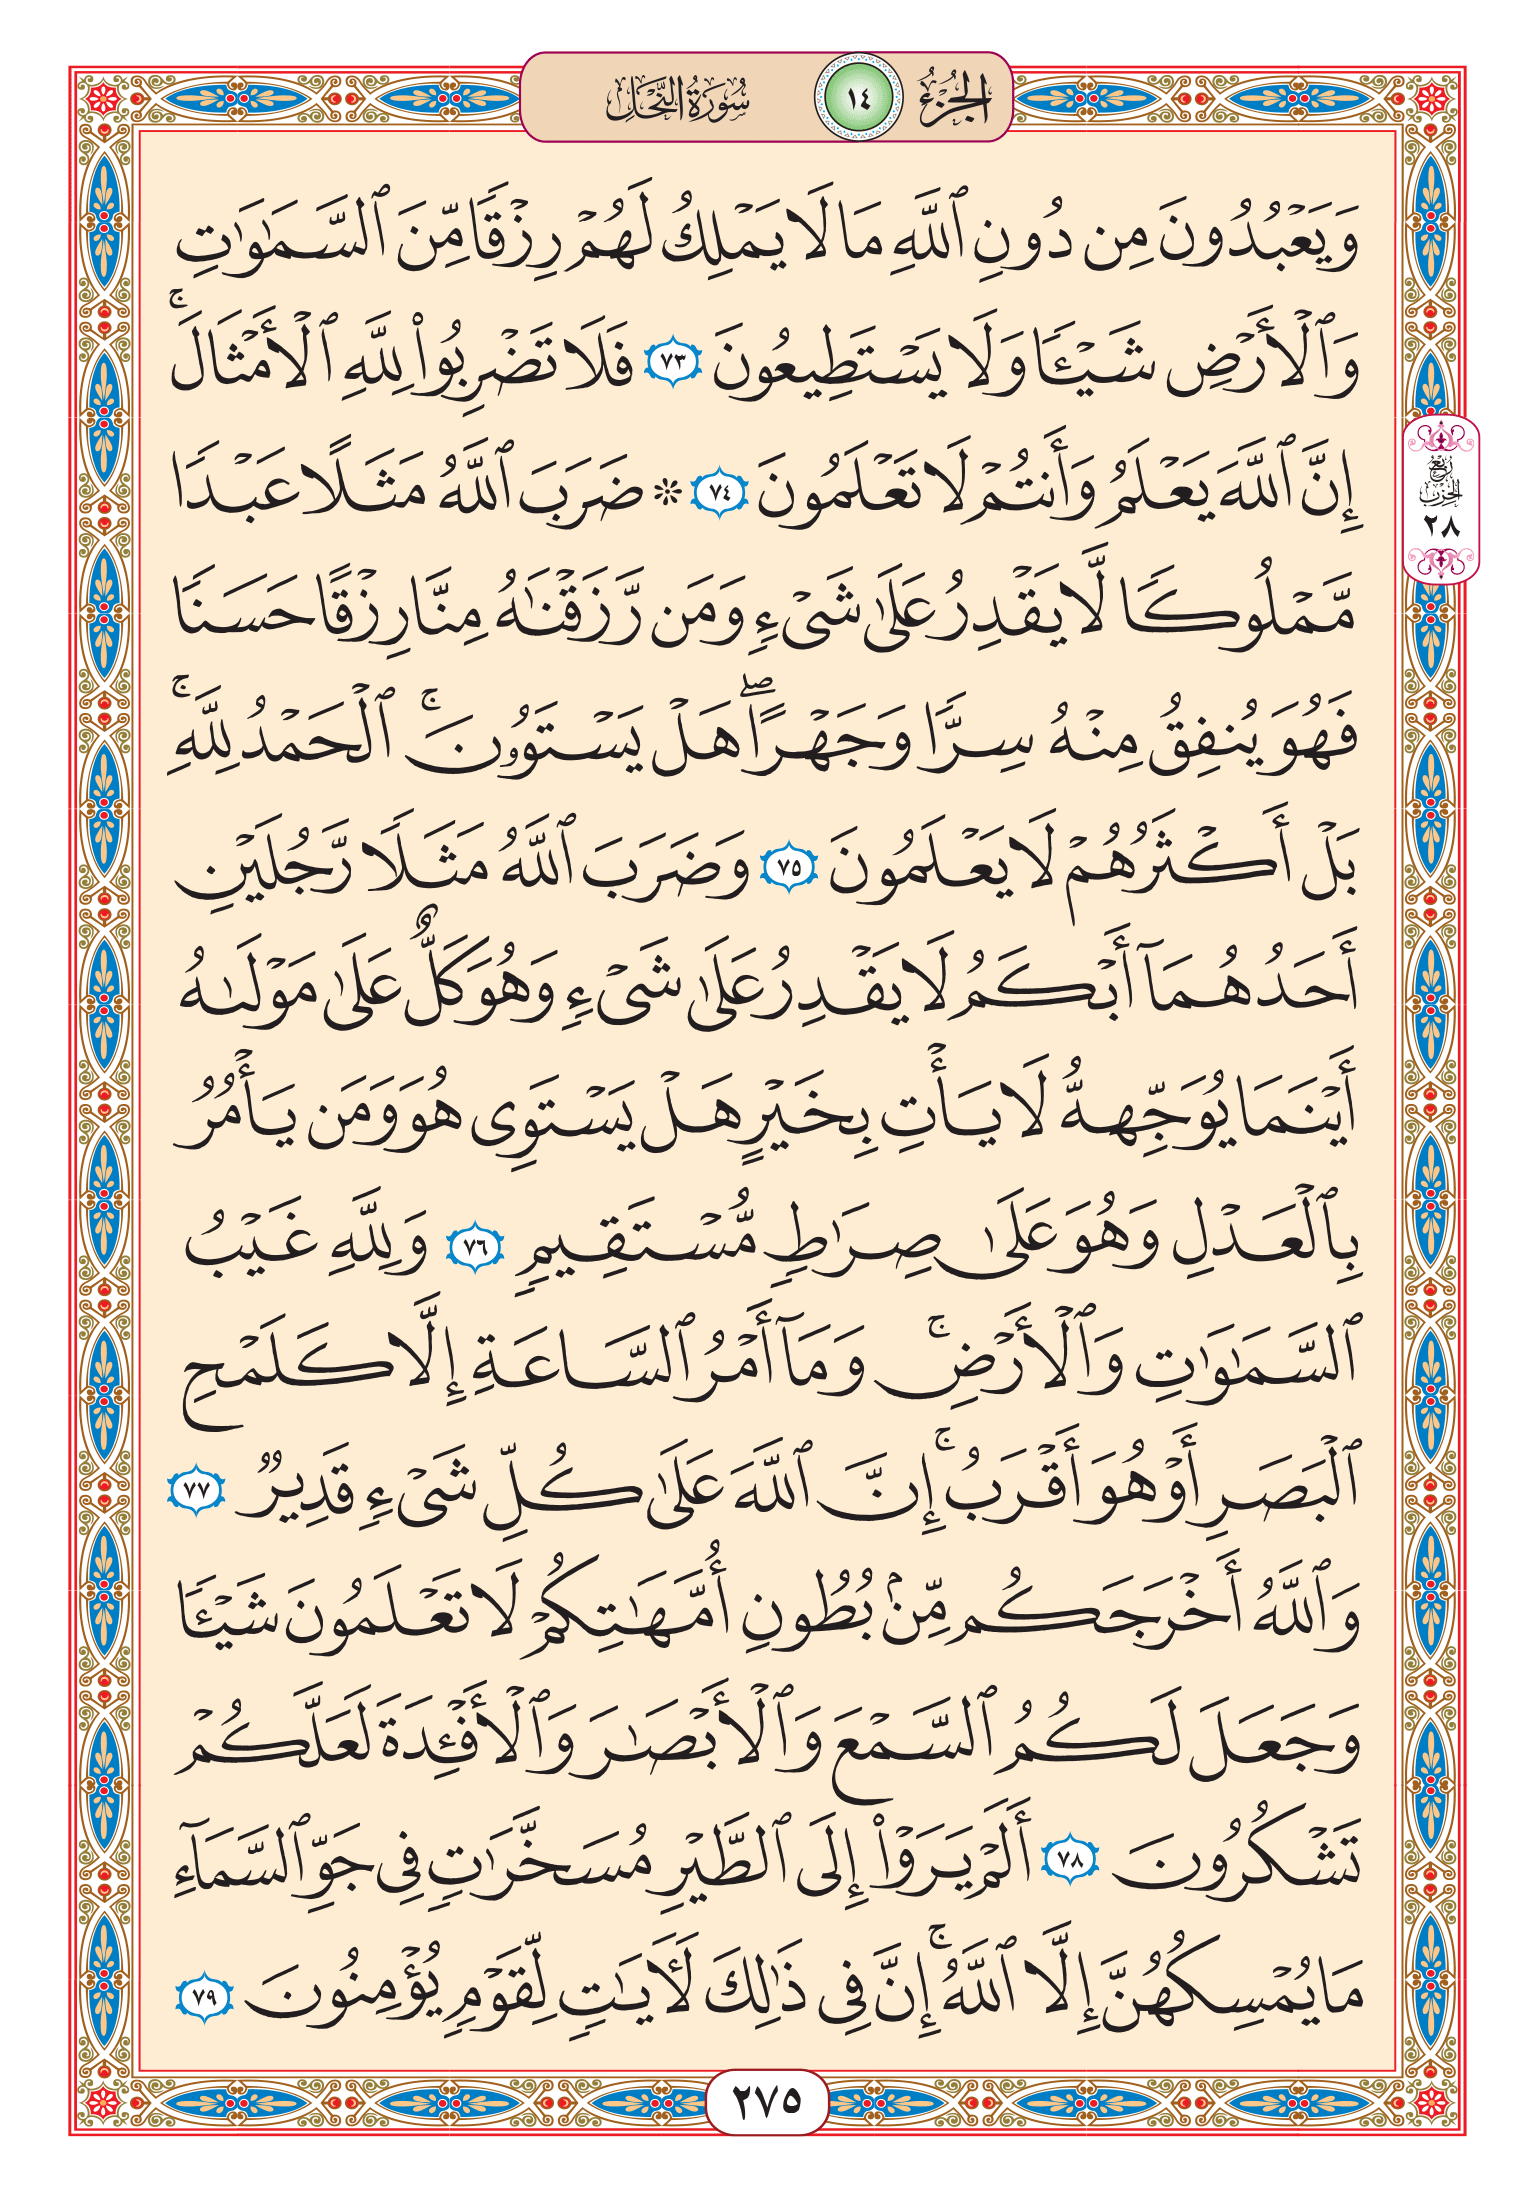 الجزء ١٤ سورة النحل
وَيَعْبُدُونَ مِن دُونِ ٱللَّهِ مَا لَا يَمْلِكُ لَهُمْ رِزْقًا مِّنَ ٱلسَّمَٰوَٰتِ
وَٱلْأَرْضِ شَيْـًٔا وَلَا يَسْتَطِيعُونَ ٧٣ فَلَا تَضْرِبُوا۟ لِلَّهِ ٱلْأَمْثَالَ ۚ
إِنَّ ٱللَّهَ يَعْلَمُ وَأَنتُمْ لَا تَعْلَمُونَ ٧٤ * ضَرَبَ ٱللَّهُ مَثَلًا عَبْدًا
ربع الحزب ٢٨
مَّمْلُوكًا لَّا يَقْدِرُ عَلَىٰ شَىْءٍ وَمَن رَّزَقْنَٰهُ مِنَّا رِزْقًا حَسَنًا
فَهُوَ يُنفِقُ مِنْهُ سِرًّا وَجَهْرًا ۖ هَلْ يَسْتَوُۥنَ ۚ ٱلْحَمْدُ لِلَّهِ ۚ
بَلْ أَكْثَرُهُمْ لَا يَعْلَمُونَ ٧٥ وَضَرَبَ ٱللَّهُ مَثَلًا رَّجُلَيْنِ
أَحَدُهُمَآ أَبْكَمُ لَا يَقْدِرُ عَلَىٰ شَىْءٍ وَهُوَ كَلٌّ عَلَىٰ مَوْلَىٰهُ
أَيْنَمَا يُوَجِّههُّ لَا يَأْتِ بِخَيْرٍ هَلْ يَسْتَوِى هُوَ وَمَن يَأْمُرُ
بِٱلْعَدْلِ وَهُوَ عَلَىٰ صِرَٰطٍ مُّسْتَقِيمٍ ٧٦ وَلِلَّهِ غَيْبُ
ٱلسَّمَٰوَٰتِ وَٱلْأَرْضِ ۚ وَمَآ أَمْرُ ٱلسَّاعَةِ إِلَّا كَلَمْحِ
ٱلْبَصَرِ أَوْ هُوَ أَقْرَبُ ۚ إِنَّ ٱللَّهَ عَلَىٰ كُلِّ شَىْءٍ قَدِيرٌ ٧٧
وَٱللَّهُ أَخْرَجَكُم مِّنۢ بُطُونِ أُمَّهَٰتِكُمْ لَا تَعْلَمُونَ شَيْـًٔا
وَجَعَلَ لَكُمُ ٱلسَّمْعَ وَٱلْأَبْصَٰرَ وَٱلْأَفْـِٔدَةَ لَعَلَّكُمْ
تَشْكُرُونَ ٧٨ أَلَمْ يَرَوْا۟ إِلَى ٱلطَّيْرِ مُسَخَّرَٰتٍ فِى جَوِّ ٱلسَّمَآءِ
مَا يُمْسِكُهُنَّ إِلَّا ٱللَّهُ ۚ إِنَّ فِى ذَٰلِكَ لَـَٔايَٰتٍ لِّقَوْمٍ يُؤْمِنُونَ ٧٩
٢٧٥